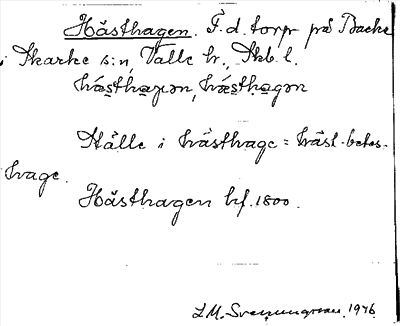 Hästhagen. F.d. torp på Backa
i Skarke s:n, Valle hr., Skb. l.
hǻsthaɡən, hǻsthaɡən
Ställe i hästhage = häst-betes-
hage.
Hästhagen hf. 1800.
L.M. Svenungsson. 1976